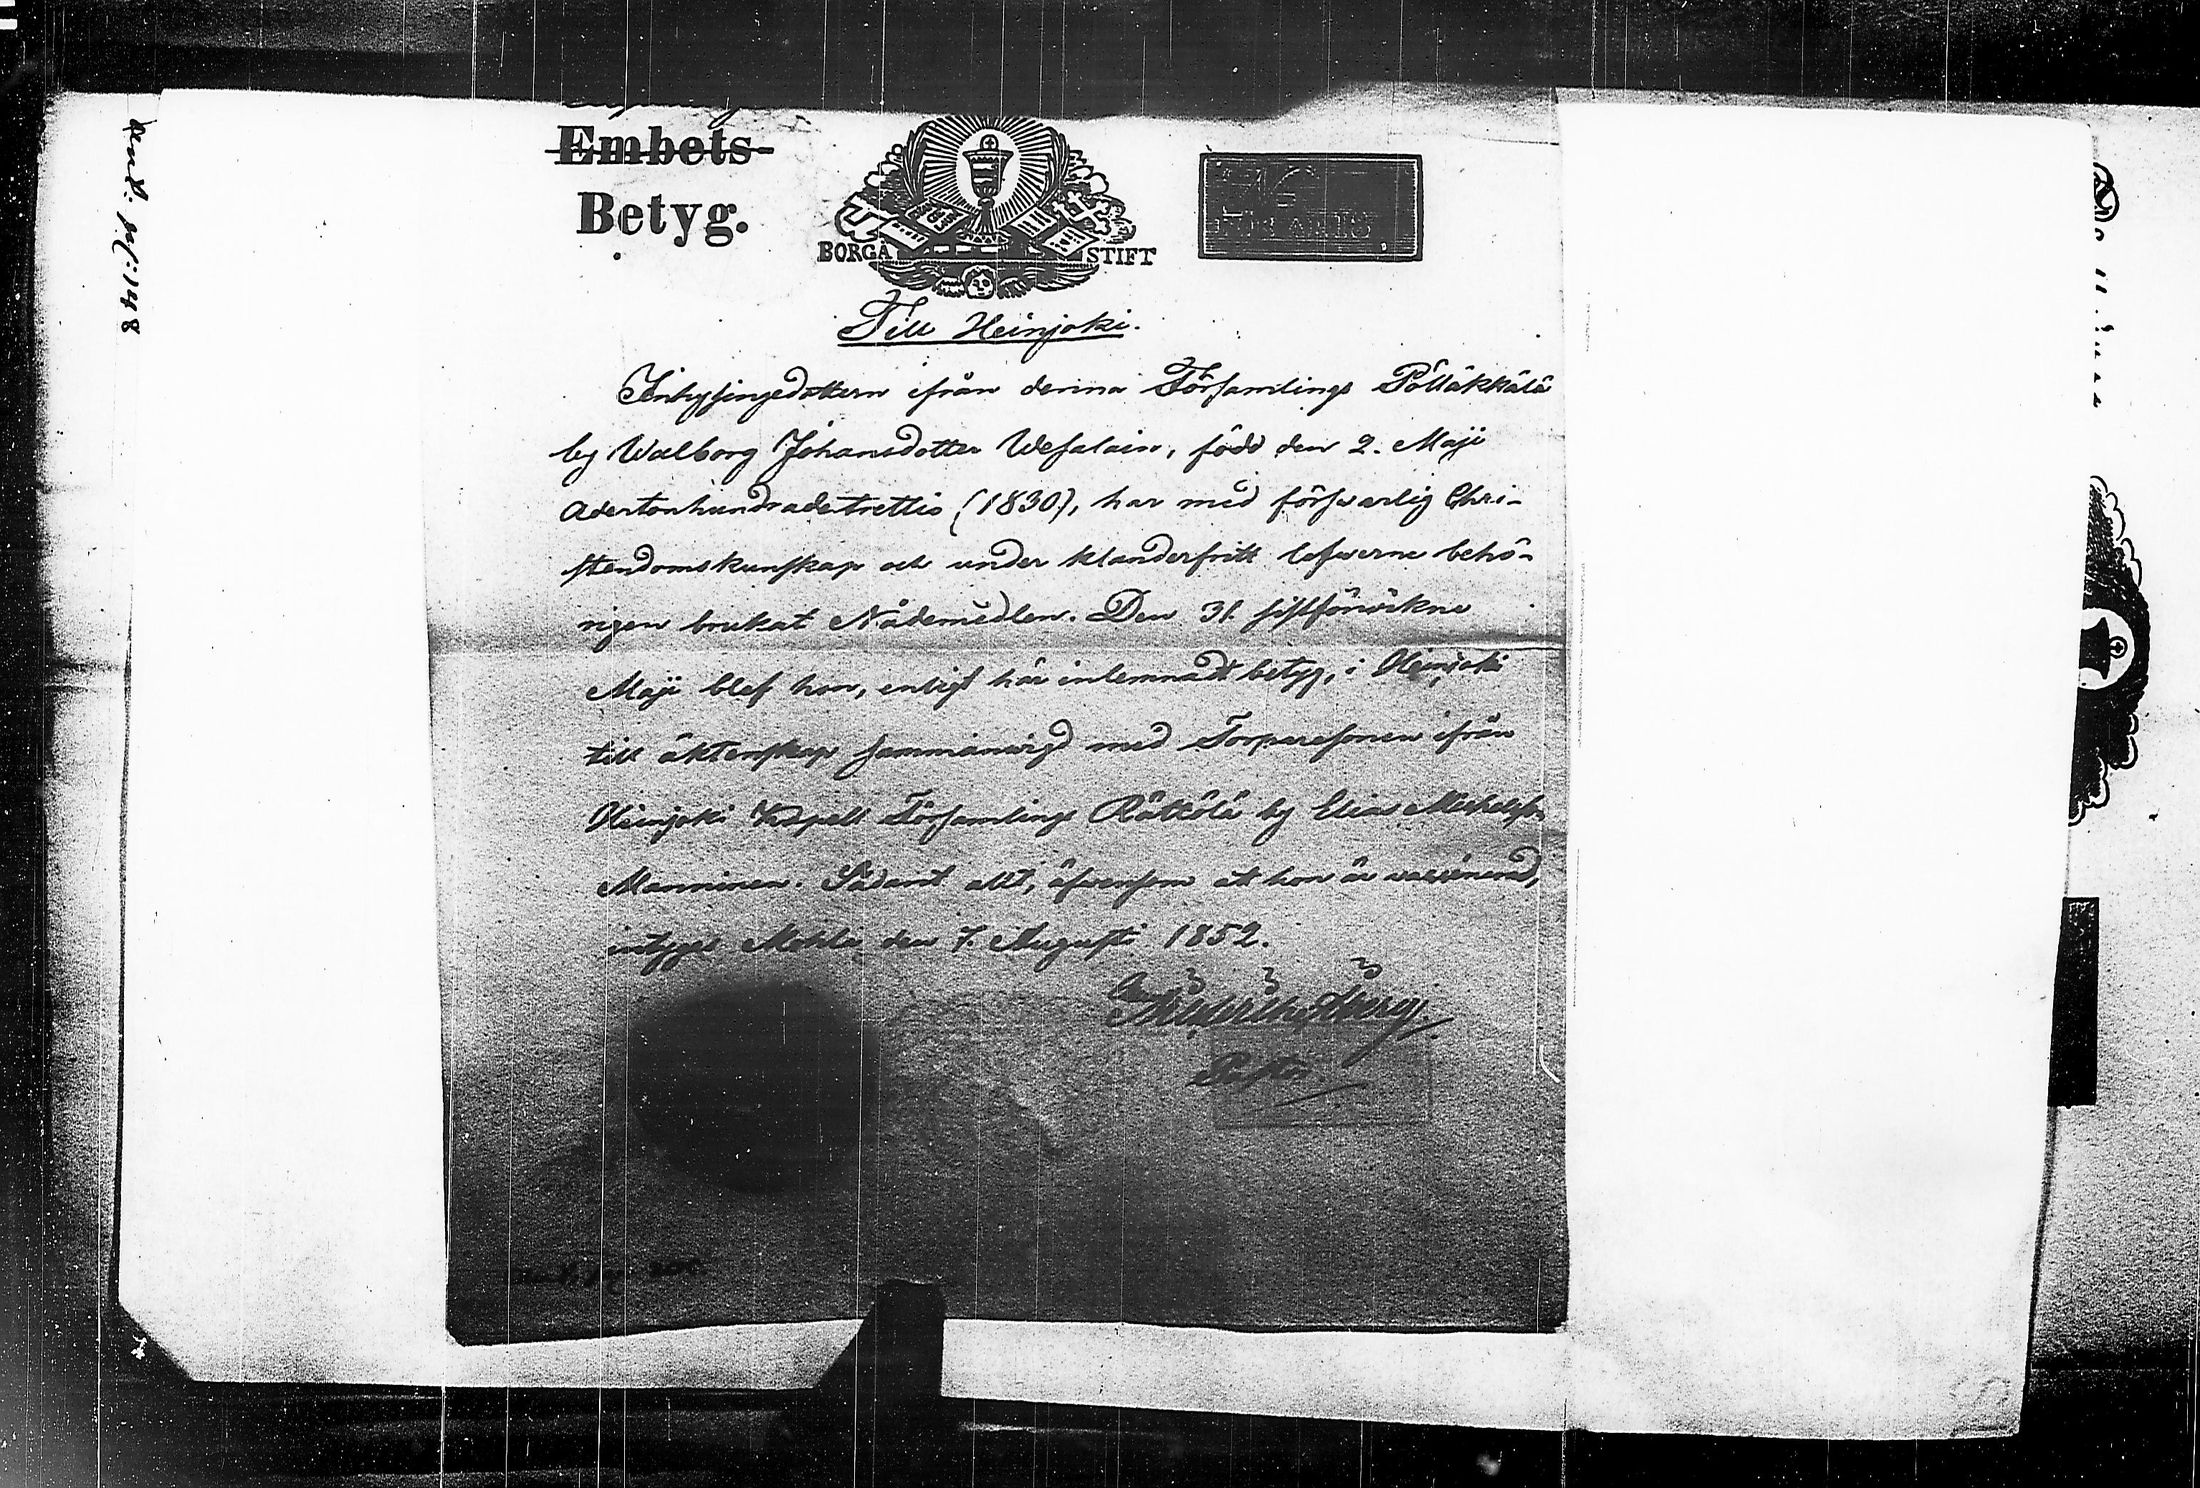 Embets-
Betyg.
BORGÅ STIFT
Till Heinjoki.
Inhysingedottern ifrån denna Församlings Pölläkkälä
by Walborg Johansdotter Wesalain, född den 2. Maji
adertonhundradetrettio (1830), har med försvarlig Chri-
stendomskunskap och under klanderfritt lefwerne behö-
rigen brukat Nådemedlen. Den 31. sistförwikne
Maji blef hon, enligt här inlemnadt betyg, i Heinjoki
till äktenskap sammanwigd med Torparesonen ifrån
Heinjoki Kapell Församlings Rättölä by Elias Michelss.
Manninen. Sådant allt, äfwensom att hon är waccinerad,
intygas Mohla den 7. Augusti 1852.
Pastor.